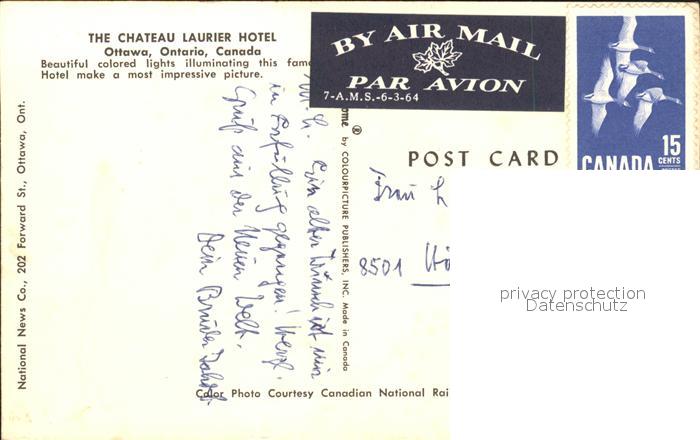 THE CHATEAU LAURIER HOTEL
Ottawa, Ontario, Canada
Beautiful colored lights illuminating this famo
Hotel make a most impressive picture.
BY AIR MAIL
PAR AVION
7-A.M.S.-6-3-64
15
CENTS
CANADA
POST CARD
National News Co., 202 Forward St., Ottawa, Ont.
Ein alter Wunsch ist mir
in Erfüllung gegangen! Herzl.
Gruß aus der Neuen Welt.
Dein Bruder
ome ® by COLOURPICTURE PUBLISHERS, INC. Made in Canada
Frau L
8501
privacy protection
Datenschutz
Color Photo Courtesy Canadian National Rai